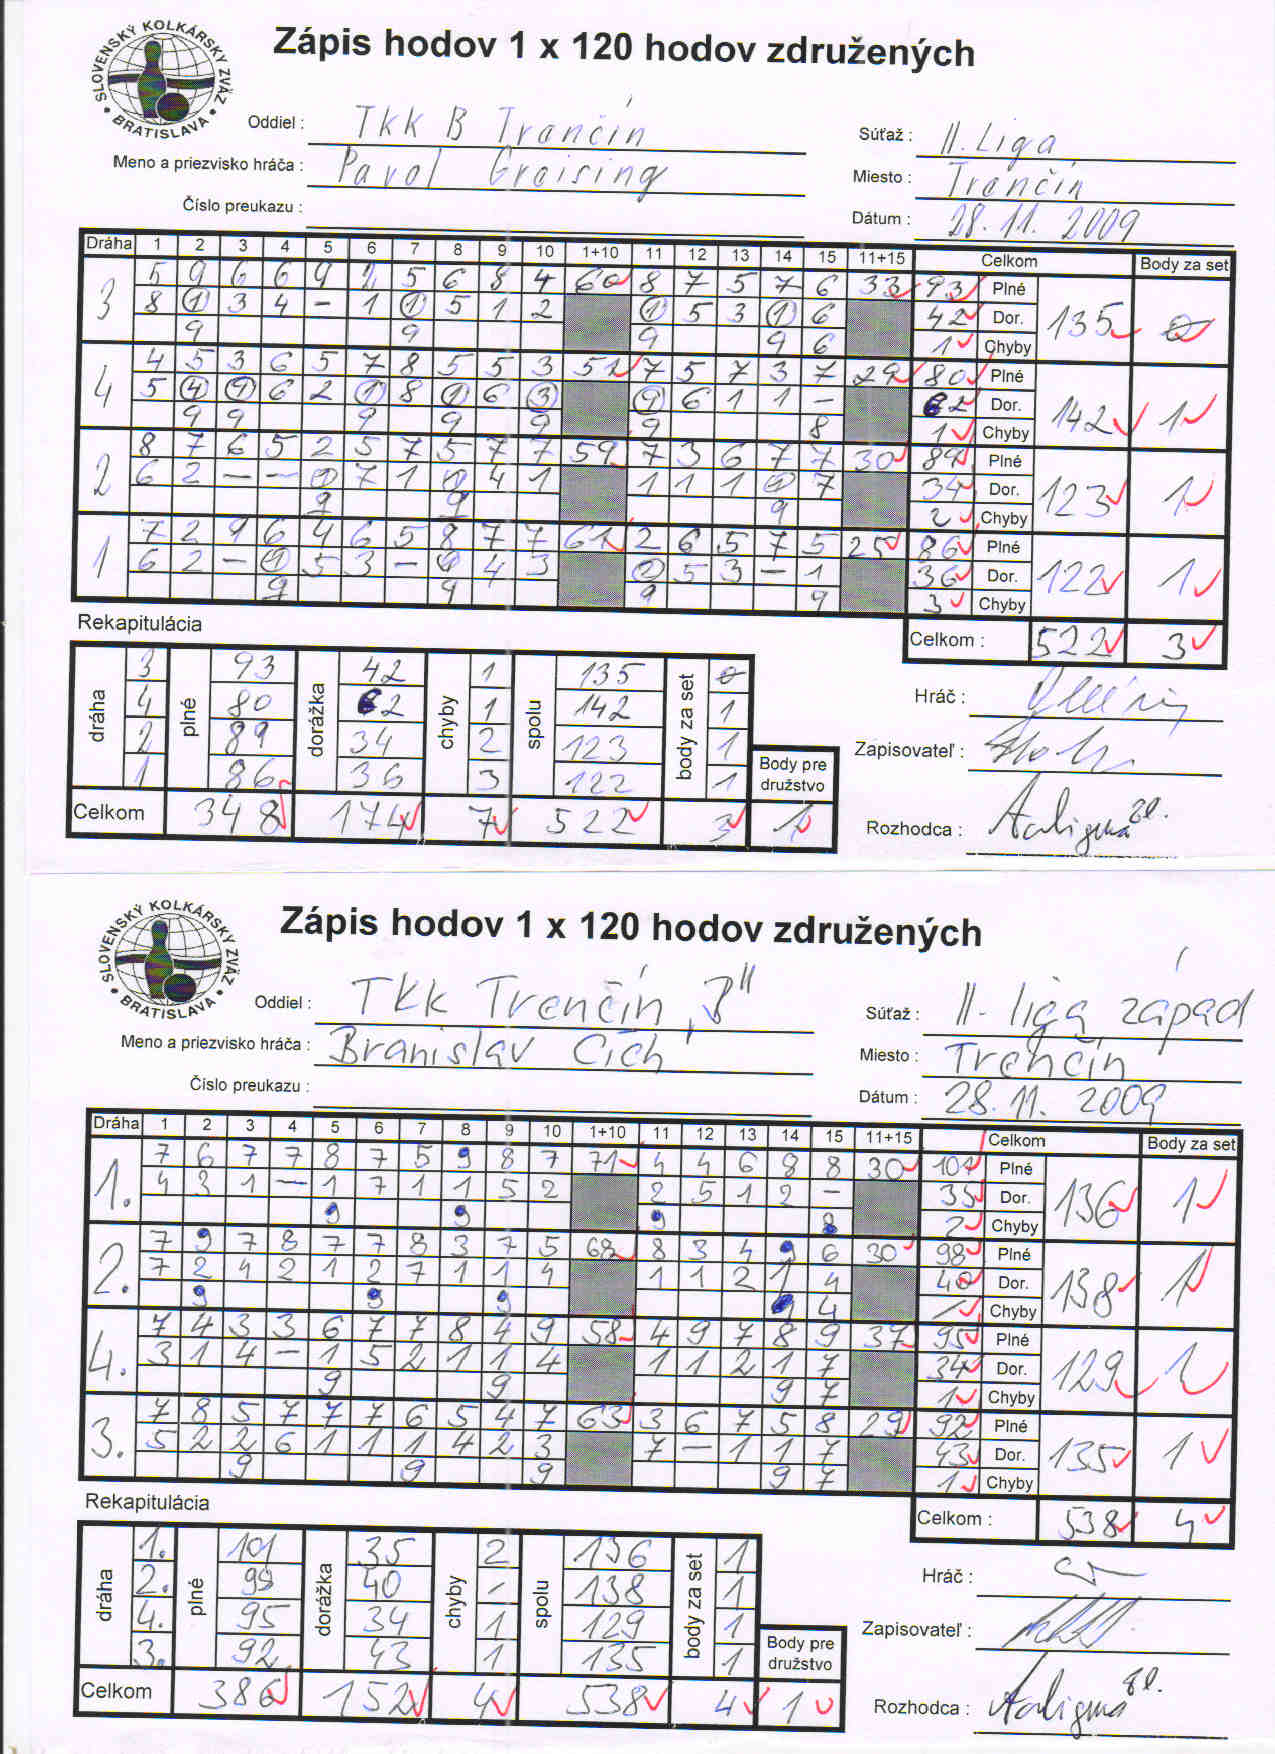 SLOVENSKÝ KOLKÁRSKY ZVÄZ • BRATISLAVA •
Zápis hodov 1 x 120 hodov združených
Oddiel : TKK B Trenčín
Súťaž : II. Liga
Meno a priezvisko hráča : Pavol Graising
Miesto : Trenčín
Číslo preukazu :
Dátum : 28. 11. 2009
Dráha 1 2 3 4 5 6 7 8 9 10 1+10 11 12 13 14 15 11+15 Celkom Body za set
3 5 9 6 6 9 2 5 6 8 4 60 8 7 5 7 6 33 93 Plné 135 0
8 1 3 4 - 1 1 5 1 2 1 5 3 1 6 42 Dor.
9 9 9 9 6 1 Chyby
4 4 5 3 6 5 7 8 5 5 3 51 7 5 7 3 7 29 80 Plné 142 1
5 4 9 6 2 1 8 1 6 3 9 6 1 1 - 62 Dor.
9 9 9 9 9 9 8 1 Chyby
2 8 7 6 5 2 5 7 5 7 7 59 7 3 6 7 7 30 89 Plné 123 1
6 2 - - 7 1 4 1 1 1 1 7 34 Dor.
9 9 9 2 Chyby
1 7 2 9 6 4 6 5 8 7 7 61 2 6 5 7 5 25 86 Plné 122 1
6 2 - 5 3 - 4 3 5 3 - 1 36 Dor.
9 9 9 9 3 Chyby
Rekapitulácia
Celkom : 522 3
dráha 3 plné 93 dorážka 42 chyby 1 spolu 135 body za set 0
4 80 62 1 142 1
2 89 34 2 123 1
1 86 36 3 122 1
Body pre družstvo
Celkom 348 174 7 522 3 1
Hráč :
Zapisovateľ :
Rozhodca :
SLOVENSKÝ KOLKÁRSKY ZVÄZ • BRATISLAVA •
Zápis hodov 1 x 120 hodov združených
Oddiel : TKK Trenčín „B"
Súťaž : II. liga, západ
Meno a priezvisko hráča : Branislav Cích
Miesto : Trenčín
Číslo preukazu :
Dátum : 28. 11. 2009
Dráha 1 2 3 4 5 6 7 8 9 10 1+10 11 12 13 14 15 11+15 Celkom Body za set
1. 7 6 7 7 8 7 5 9 8 7 71 4 4 6 8 8 30 101 Plné 136 1
4 3 1 - 1 7 1 1 5 2 2 5 1 2 - 35 Dor.
9 9 9 8 2 Chyby
2. 7 9 7 8 7 7 8 3 7 5 68 8 3 4 9 6 30 98 Plné 138 1
7 2 4 2 1 2 7 1 1 4 1 1 2 1 4 40 Dor.
9 9 9 9 4 - Chyby
4. 7 4 3 3 6 7 7 8 4 9 58 4 9 7 8 9 37 95 Plné 129 1
3 1 4 - 1 5 2 1 1 4 1 1 2 1 7 34 Dor.
9 9 9 7 1 Chyby
3. 7 8 5 7 7 7 6 5 4 7 63 3 6 7 5 8 29 92 Plné 135 1
5 2 2 6 1 1 1 4 2 3 7 - 1 1 7 43 Dor.
9 9 9 9 7 1 Chyby
Rekapitulácia
Celkom : 538 4
dráha 1. plné 101 dorážka 35 chyby 2 spolu 136 body za set 1
2. 98 40 - 138 1
4. 95 34 1 129 1
3. 92 43 1 135 1
Body pre družstvo
Celkom 386 152 4 538 4 1
Hráč :
Zapisovateľ :
Rozhodca :